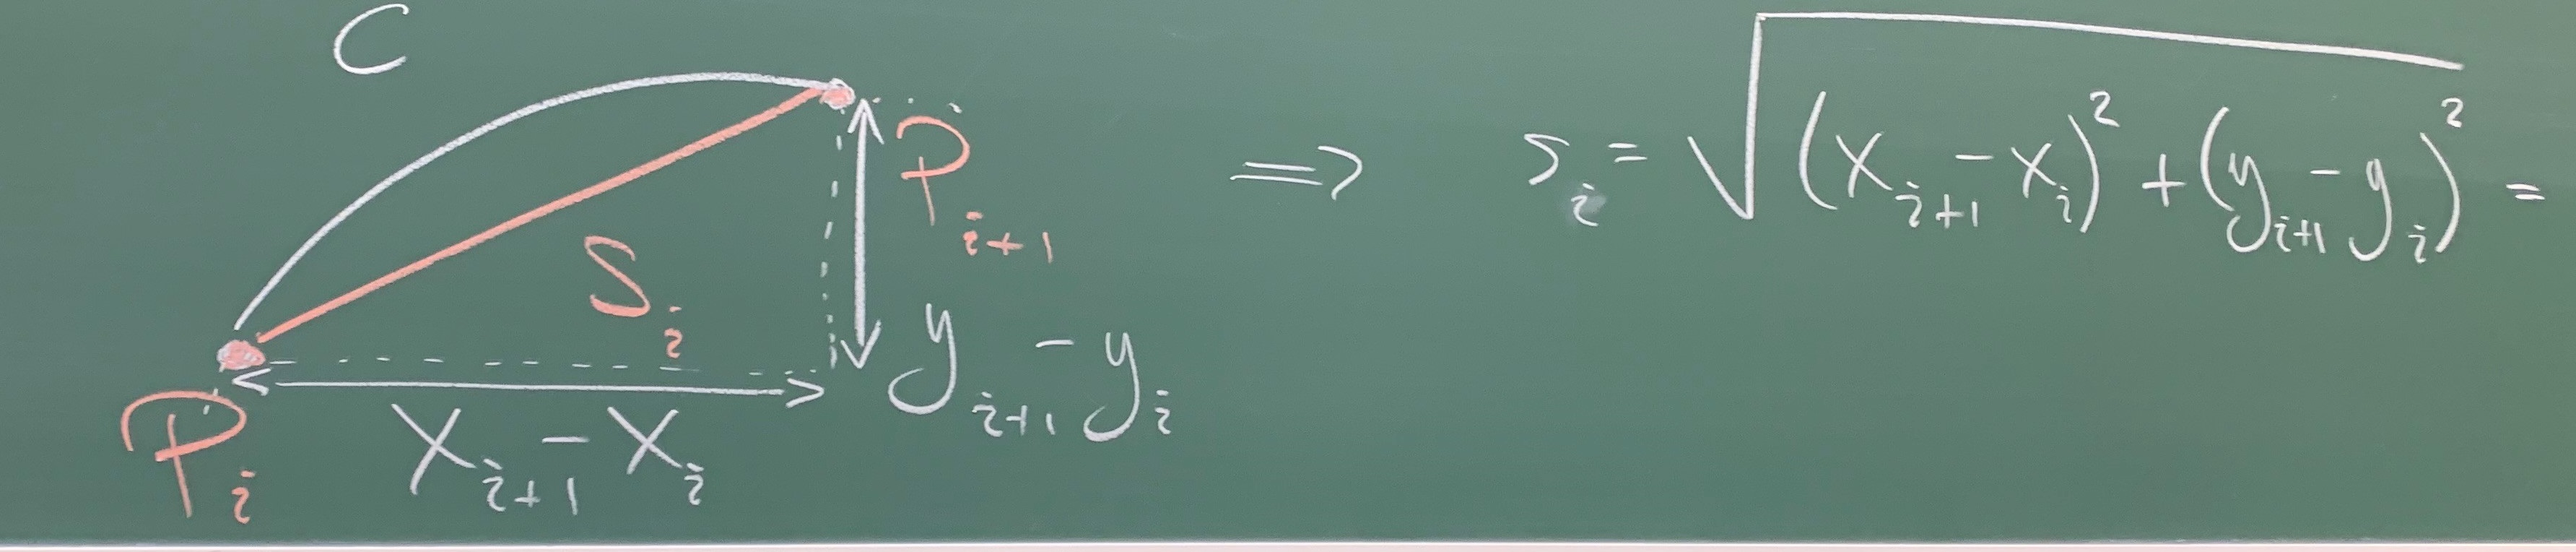 C
P_{i+1}
S_i
y_{i+1} - y_i
P_i
X_{i+1} - X_i
⟹ s_i = √((x_{i+1} - x_i)² + (y_{i+1} - y_i)²) =